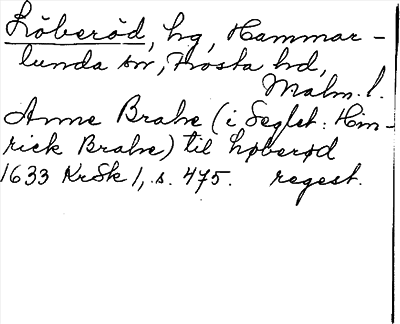 Löberöd, hg, Hammar-
lunda sn, Frosta hd,
Malm. l.
Anne Brahe (i Seglst: Hin-
rick Brahe) til Løberød
1633 KrSk 1, s. 475. regest.